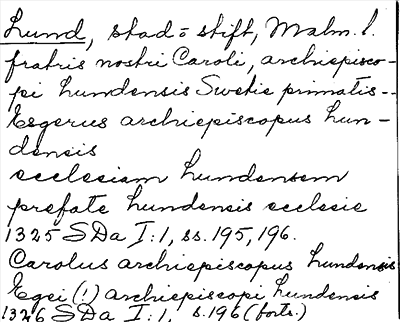 Lund, stad o stift, Malm. l.
fratris nostri Caroli, archiepisco-
pi Lundensis Swetie primatis--
Esgerus archiepiscopus Lun-
densis
ecclesiam Lundensem
prefate Lundensis ecclesie
1325 SDa I:1, ss. 195, 196.
Carolus archiepiscopus Lundensis
Egei (!) archiepiscopi Lundensis
1326 SDa I:1, s. 196 (forts.)